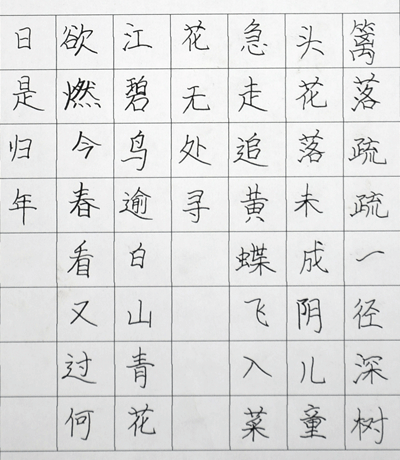 篱落疏疏一径深树
头花落未成阴儿童
急走追黄蝶飞入菜
花无处寻
江碧鸟逾白山青花
欲燃今春看又过何
日是归年